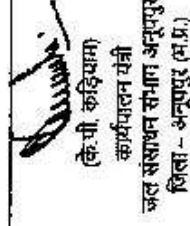 (के.पी. कड़ियाम)
कार्यपालन यंत्री
जल संसाधन संभाग अनूपपुर
जिला – अनूपपुर (म.प्र.)